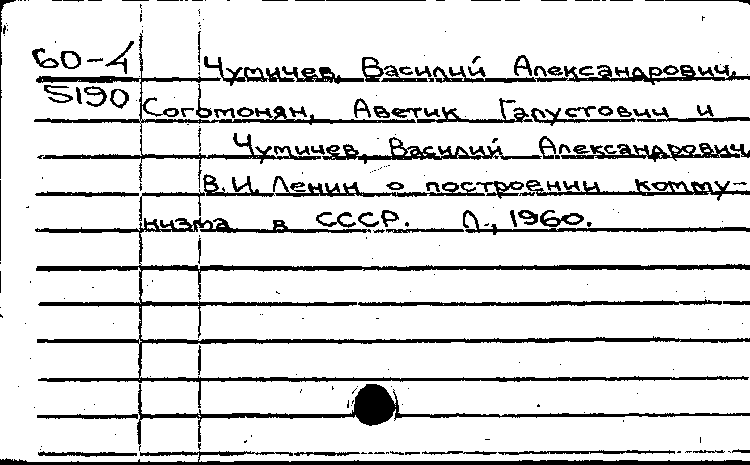 60-4 Чумичев, Василий Александрович.
5190 Согомонян, Аветик Галустович и
Чумичев, Василий Александрович.
В.И. Ленин о построении комму-
низма в СССР. Л., 1960.